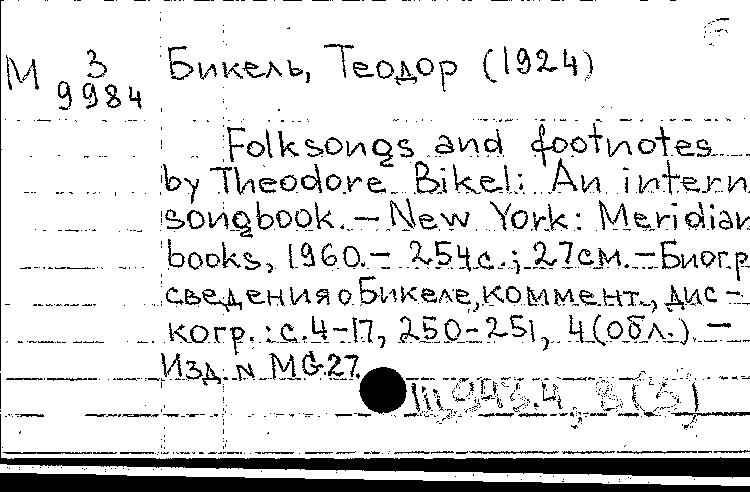 М 3 Бикель, Теодор (1924)
9984
Folksongs and footnotes
by Theodore Bikel: An intern
songbook. – New York: Meridian
books, 1960. – 254с.; 27см. – Биогр.
сведения о Бикеле, коммент., дис-
когр.: с. 4-17, 250-251, 4 (обл.). –
Изд. N MG27.
943.4, 8(3)